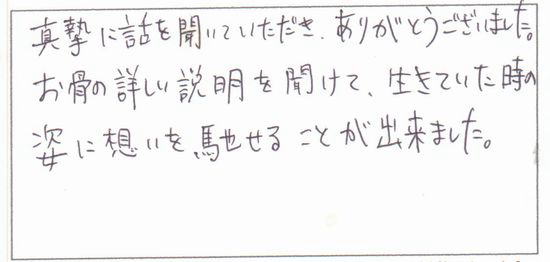 真摯に話を聞いていただき、ありがとうございました。
お骨の詳しい説明を聞けて、生きていた時の
姿に想いを馳せることが出来ました。